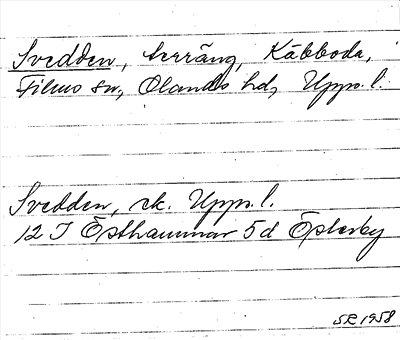 Svedden, terräng, Käbboda,
Films sn, Olands hd, Upps. l.
Svedden, ek. Upps. l.
12 I Östhammar 5d Österby
SR 1958